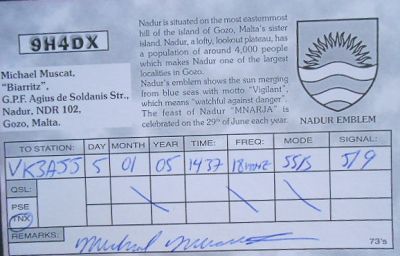 9H4DX
Michael Muscat,
"Biarritz",
G.P.F. Agius de Soldanis Str.,
Nadur. NDR 102,
Gozo, Malta.
Nadur is situated on the most easternmost
hill of the island of Gozo, Malta's sister
island. Nadur, a lofty, lookout plateau, has
a population of around 4,000 people
which makes Nadur one of the largest
localities in Gozo.
Nadur's emblem shows the sun merging
from blue seas with motto "Vigilant",
which means "watchful against danger".
The feast of Nadur "MNARJA" is
celebrated on the 29th of June each year.
NADUR EMBLEM
TO STATION: DAY MONTH YEAR TIME: FREQ: MODE SIGNAL:
VK3ASS 5 01 05 1437 18MHZ SSB 5/9
QSL:
PSE
TNX
REMARKS: Michael Muscat 73's